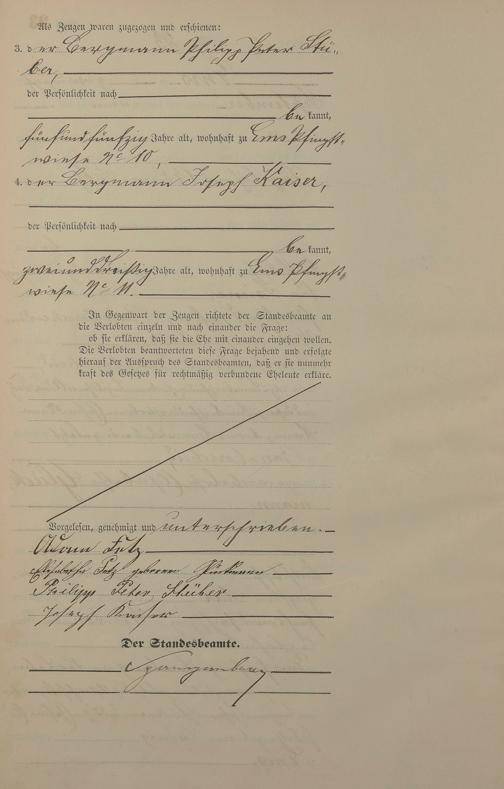 Als Zeugen waren zugezogen und erschienen:
3. der Bergmann Philipp Peter Stü-
ber,
der Persönlichkeit nach
be kannt,
fünfundfünfzig Jahre alt, wohnhaft zu Ems Pfingst-
wiese No 10,
4. der Bergmann Joseph Kaiser,
der Persönlichkeit nach
be kannt,
zweiunddreißig Jahre alt, wohnhaft zu Ems Pfingst-
wiese No 11.
In Gegenwart der Zeugen richtete der Standesbeamte an
die Verlobten einzeln und nach einander die Frage:
ob sie erklären, daß sie die Ehe mit einander eingehen wollen.
Die Verlobten beantworteten diese Frage bejahend und erfolgte
hierauf der Ausspruch des Standesbeamten, daß er sie nunmehr
kraft des Gesetzes für rechtmäßig verbundene Eheleute erkläre.
Vorgelesen, genehmigt und unterschrieben.
Adam
geborene
Philipp Peter Stüber
Joseph Kaiser
Der Standesbeamte.
Spangenberg